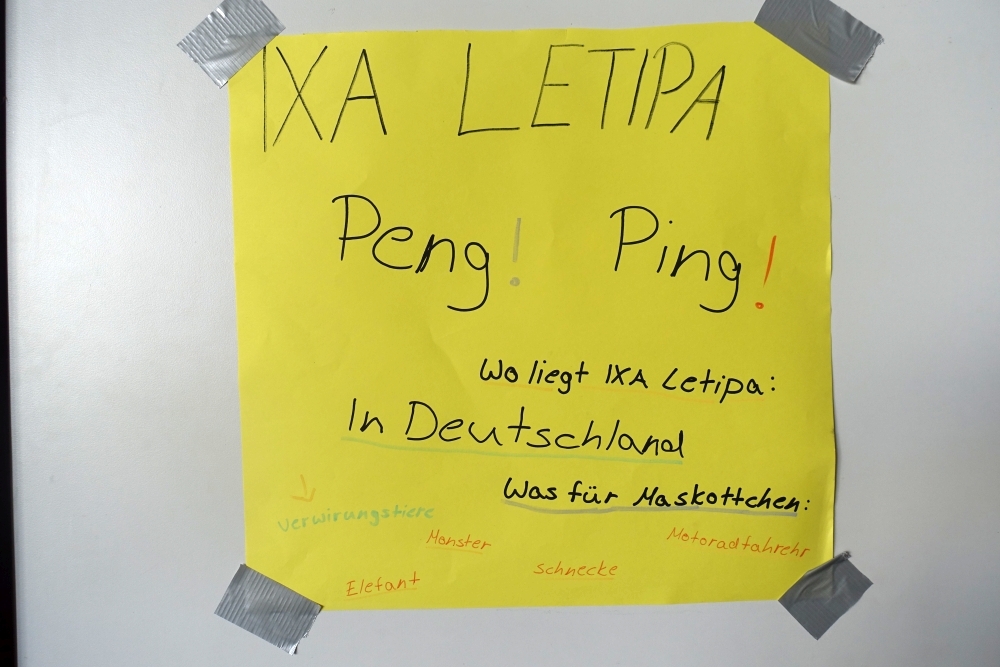 IXA LETIPA
Peng! Ping!
Wo liegt IXA Letipa:
In Deutschland
Was für Maskottchen:
Verwirungstiere
Monster
Motoradfahrehr
Schnecke
Elefant